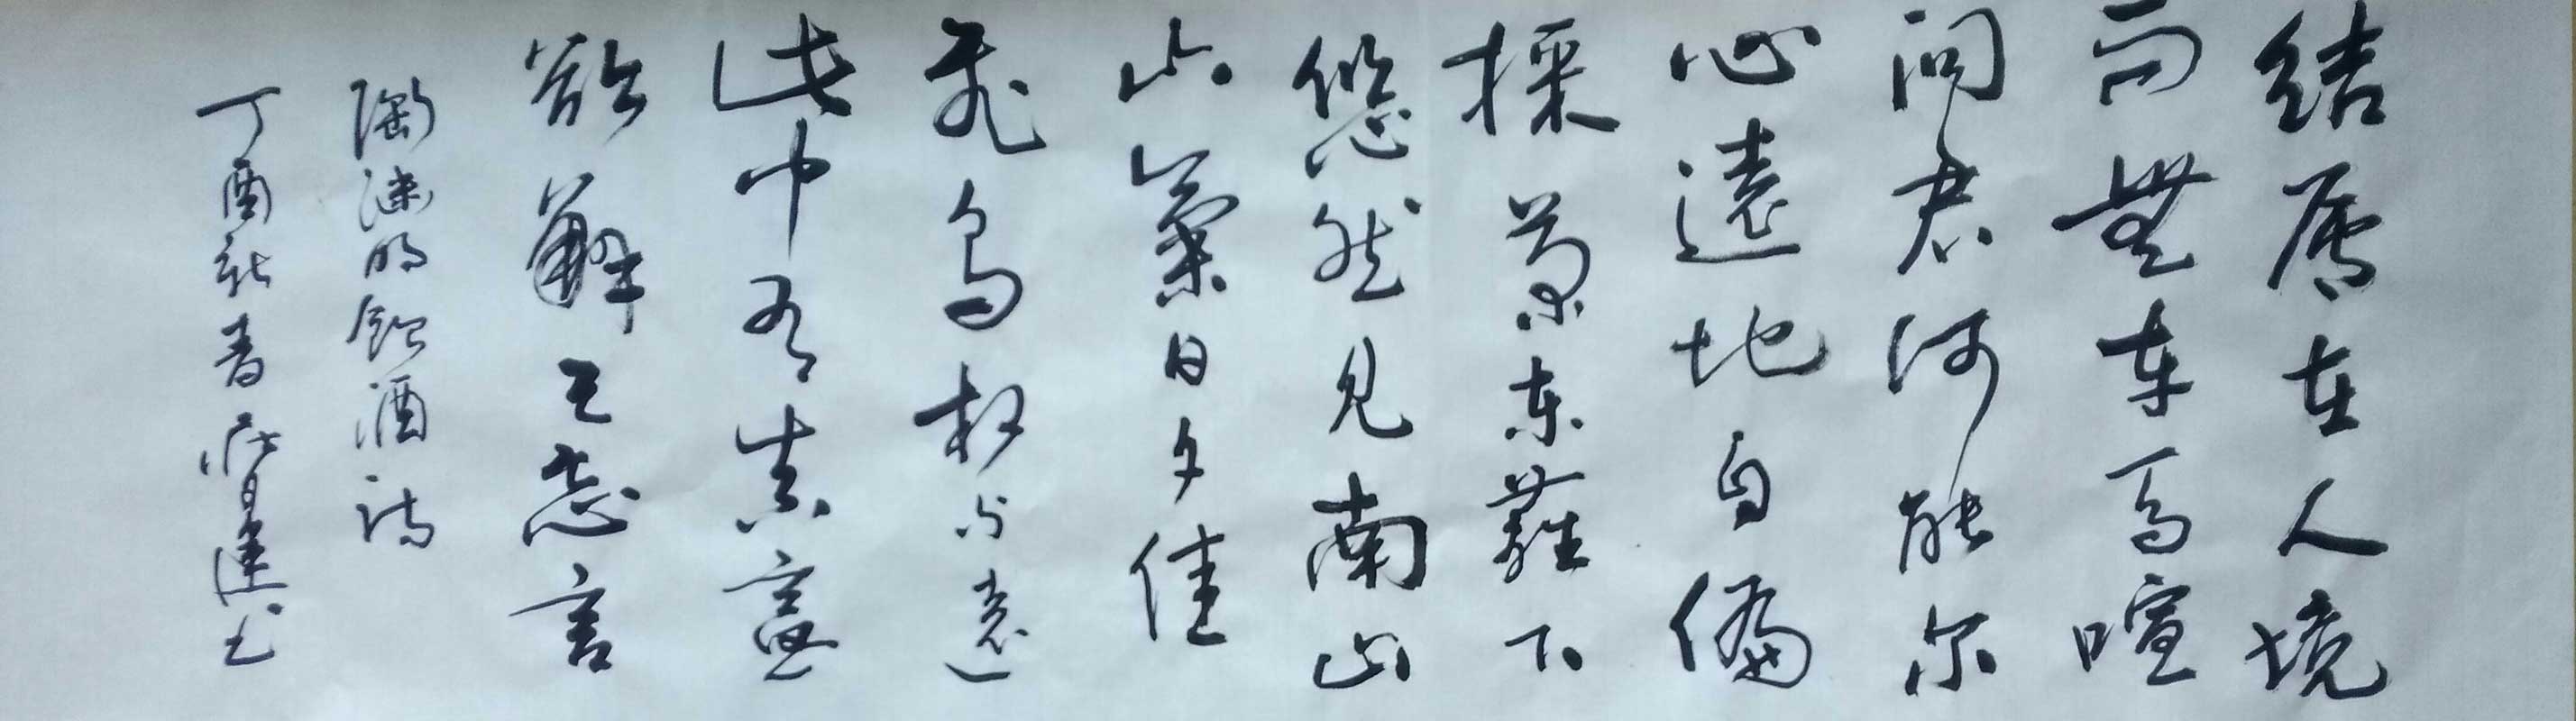 結廬在人境
而無车马喧
问君何能尔
心遠地自偏
採菊东籬下
悠然见南山
山氣日夕佳
飞鸟相与還
此中有真意
欲解已忘言
陶渊明饮酒诗
丁酉新春 书